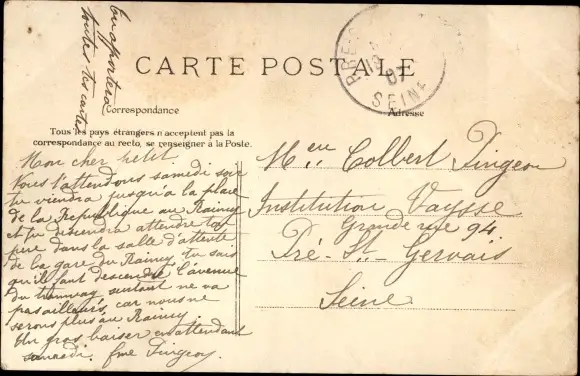 tu apportera
toutes tes cartes
CARTE POSTALE
PRE-S
07
SEINE
Correspondance
Adresse
Tous les pays étrangers n'acceptent pas la
correspondance au recto, se renseigner à la Poste.
Mon cher petit.
Nous t'attendons samedi soir
tu viendra jusqu'à la place
de la République au Raincy
et tu descendra attendre ton
père dans la salle d'attente
de la gare du Raincy, tu sais
qu'il faut descendre l'avenue
du tramway surtout ne va
pas ailleurs, car nous ne
serons plus au Raincy.
Un gros baiser en attendant
samedi. fme Pingeon.
Mon Colbert Pingeon
Institution Vaysse
Grande rue 94
Pré-St-Gervais
Seine